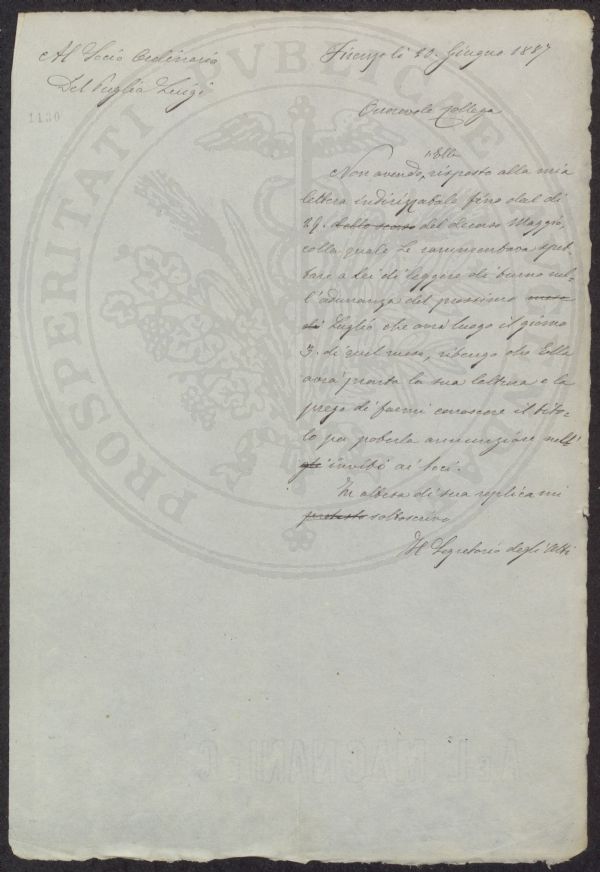 Al Socio Ordinario
Del Puglia Luigi
1130
Firenze li 20. Giugno 1887
Onorevole Collega
Ella
Non avendo, risposto alla mia
lettera indirizzatale fino dal di
29. detto scorso del decorso Maggio,
colla quale Le rammentava spet-
tare a Lei di leggere di turno nel-
l'adunanza del prossimo mese
di Luglio che avrà luogo il giorno
3. di quel mese, ritengo che Ella
avrà pronta la sua lettura e la
prego di farmi conoscere il tito-
lo per poterla annunziare nell'
gli inviti ai Soci.
In attesa di sua replica mi
protesto sottoscrivo
Il Segretario degli Atti
PROSPERITATI PUBLICAE
AEL MAGNANI E C